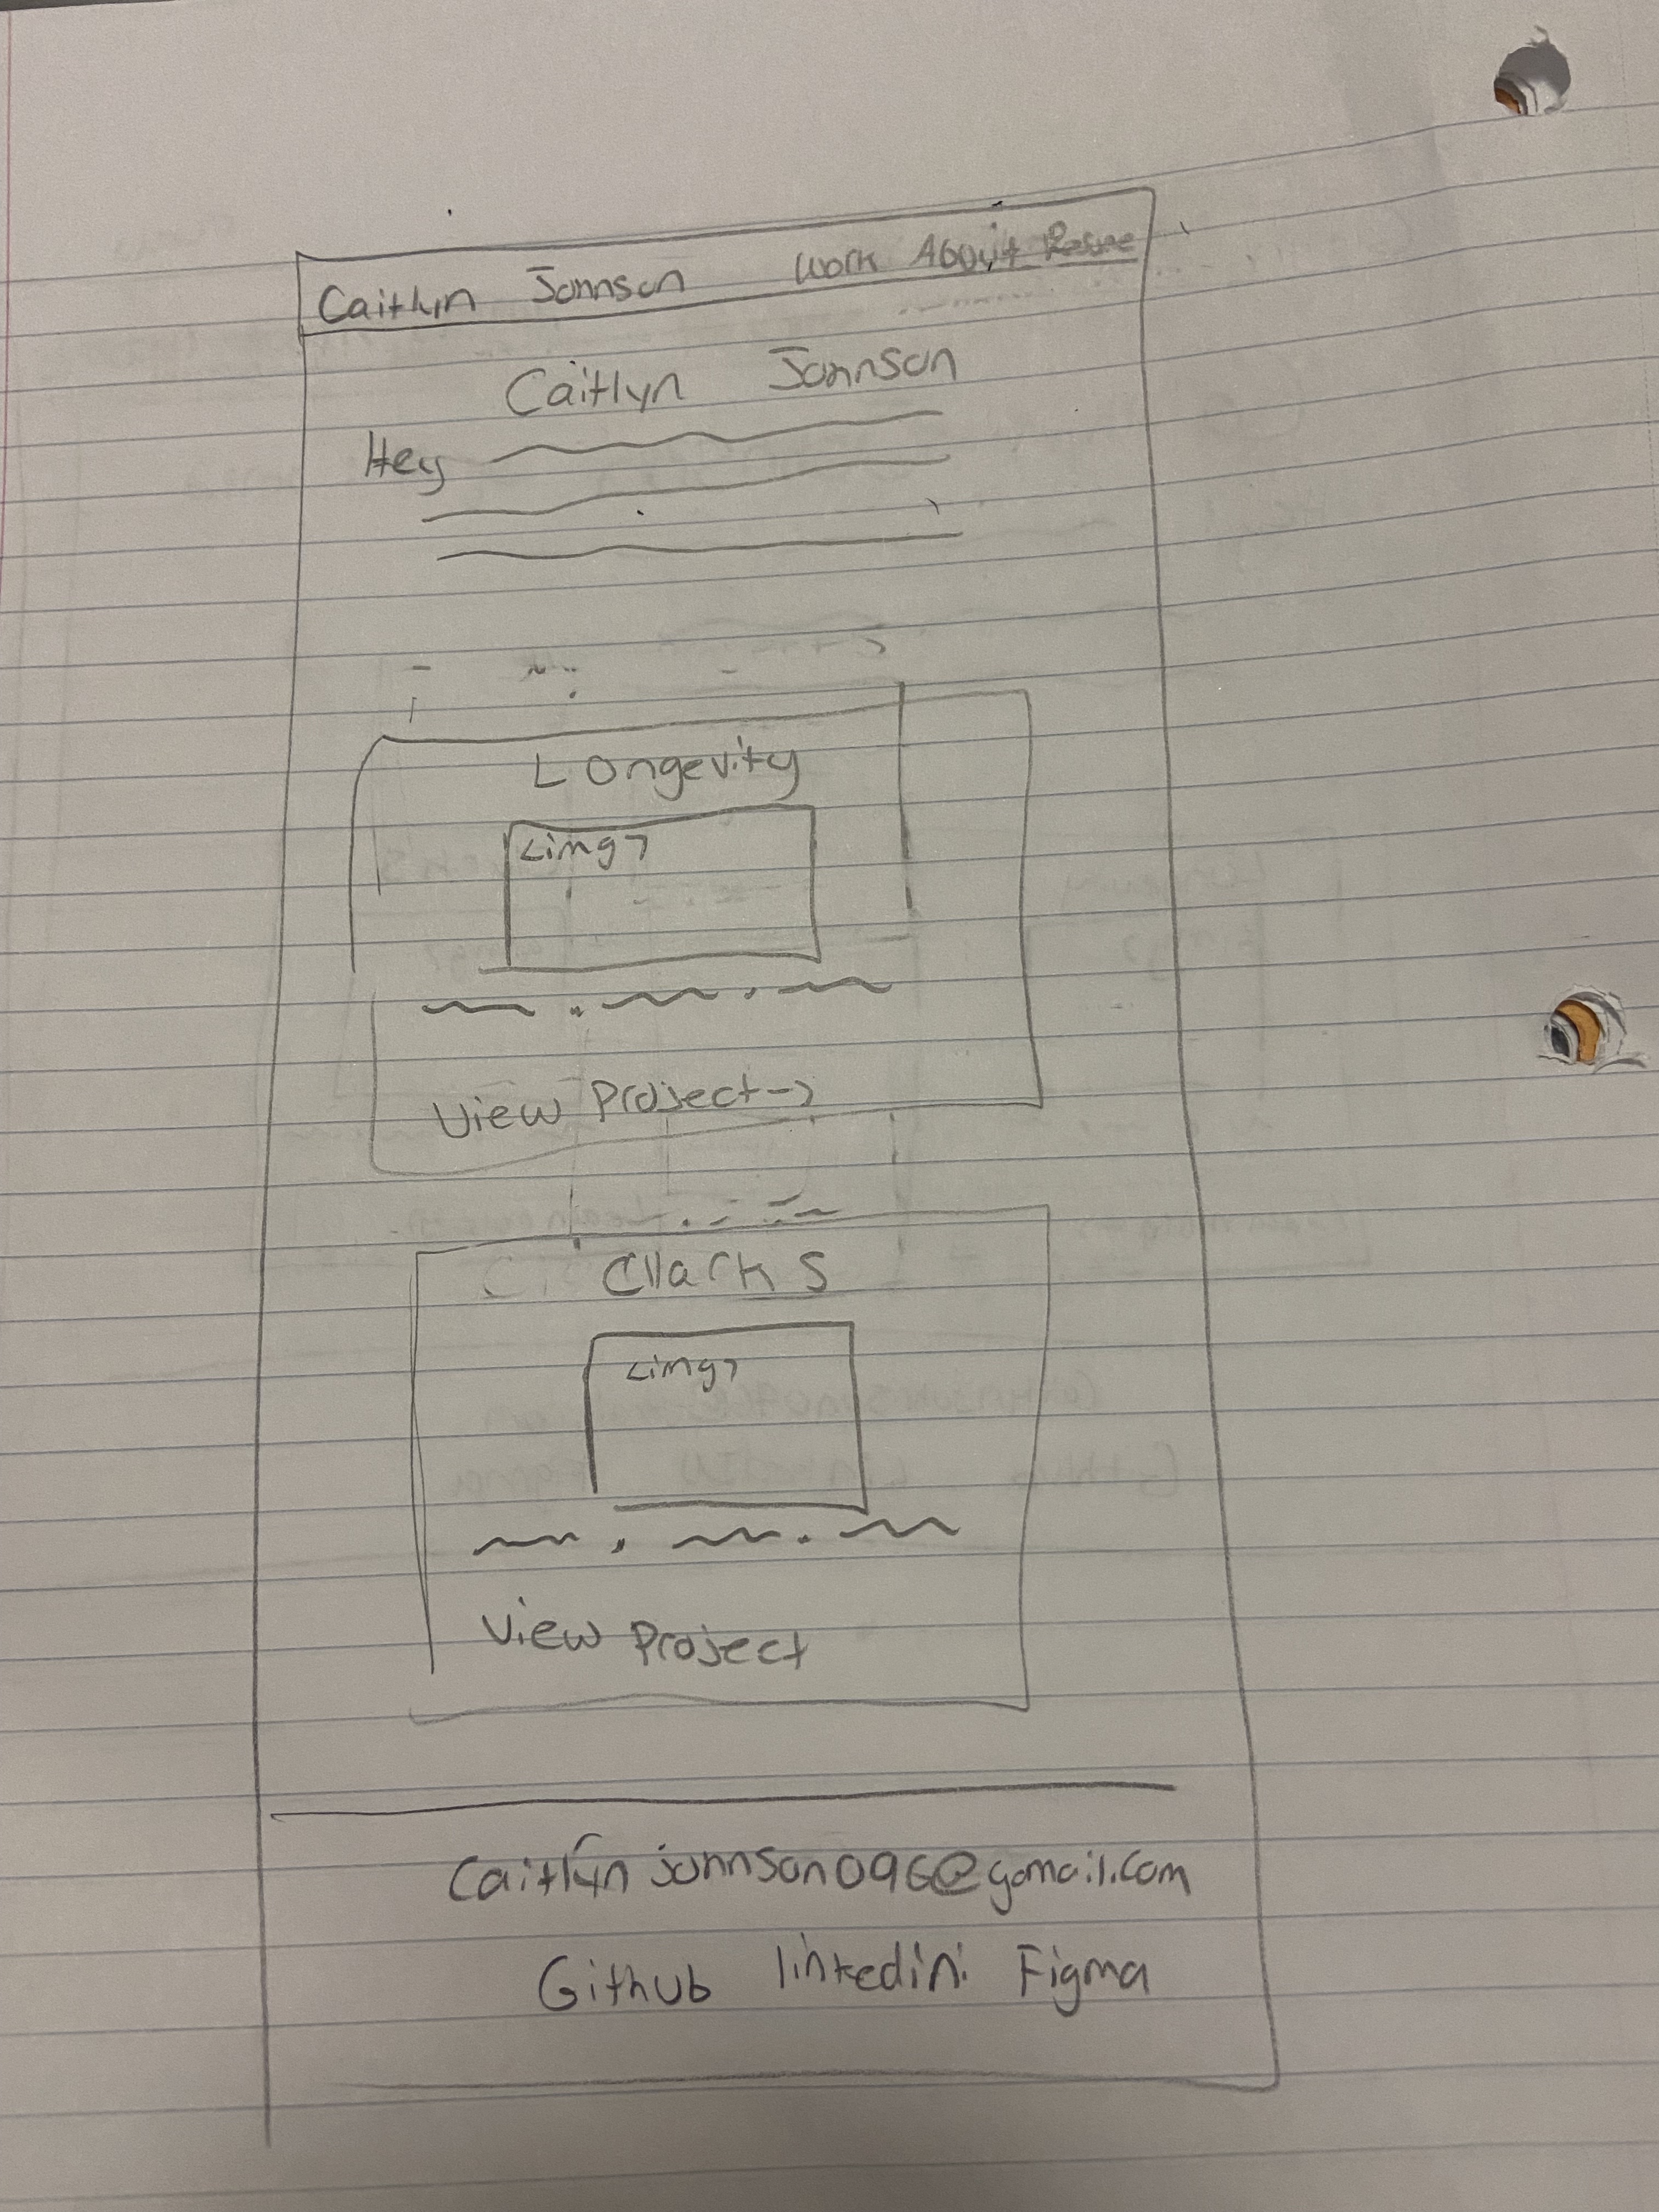 Caitlyn Johnson Work About Resume
Caitlyn Johnson
Hey
Longevity
<img>
View Project->
Cllark s
<img>
View Project
Caitlynjohnson096@gmail.com
Github linkedin Figma